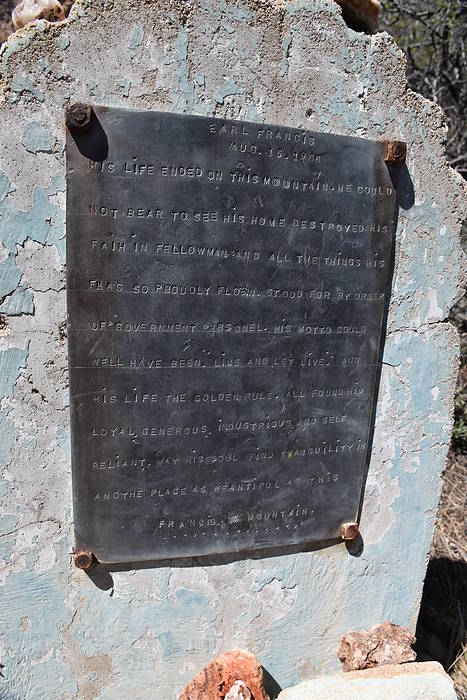 EARL FRANCIS
AUG. 15, 1966
HIS LIFE ENDED ON THIS MOUNTAIN. HE COULD
NOT BEAR TO SEE HIS HOME DESTROYED HIS
FAIH IN FELLOWMAN AND ALL THE THINGS HIS
FLAG SO PROUDLY FLOWN. STOOD FOR, BY ORDER
OF GOVERNMENT PERSONEL. HIS MOTTO COULD
WELL HAVE BEEN. LIVE AND LET LIVE. AND
HIS LIFE THE GOLDEN RULE. ALL FOUND HIM
LOYAL GENEROUS INDUSTRIOUS AND SELF
RELIANT. MAY HIS SOUL FIND TRANQUILITY IN
ANOTHE PLACE AS BEAUTIFUL AS THIS
FRANCIS MOUNTAIN.